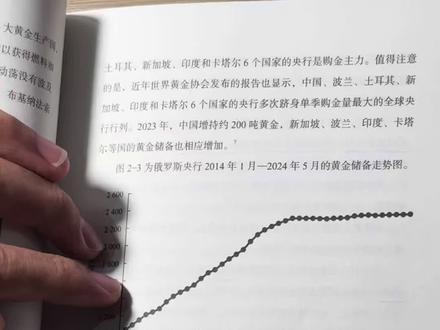 大黄金生产国,
以获得燃料和
动荡没有波及
布基纳法索
土耳其、新加坡、印度和卡塔尔 6 个国家的央行是购金主力。值得注意
的是，近年世界黄金协会发布的报告也显示，中国、波兰、土耳其、新
加坡、印度和卡塔尔 6 个国家的央行多次跻身单季购金量最大的全球央
行行列。2023 年，中国增持约 200 吨黄金，新加坡、波兰、印度、卡塔
尔等国的黄金储备也相应增加。⁷
图 2-3 为俄罗斯央行 2014 年 1 月—2024 年 5 月的黄金储备走势图。
2 600
2 400